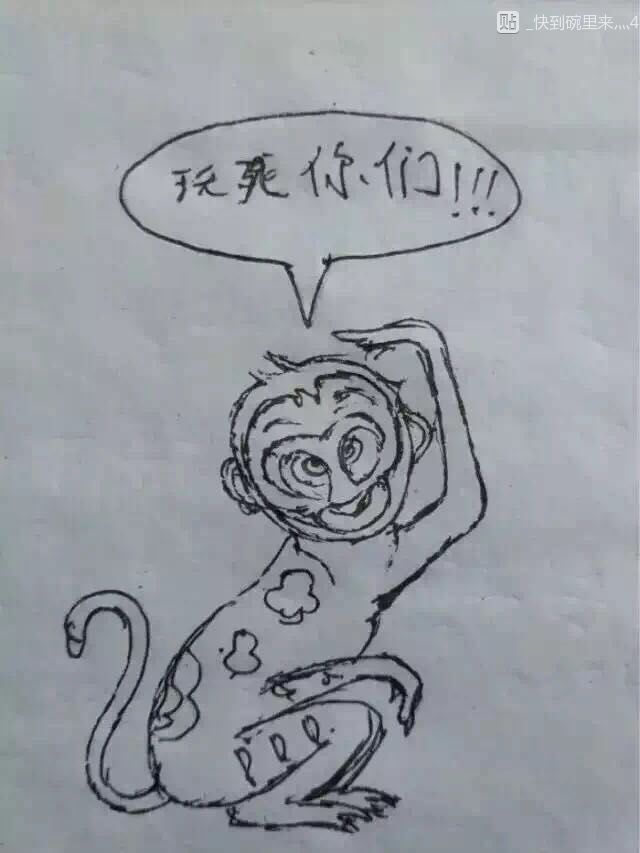 贴 _快到碗里来灬4
玩死你们!!!